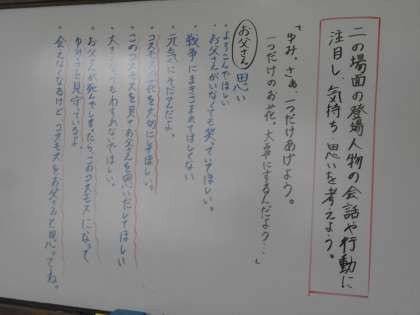 二の場面の登場人物の会話や行動に
注目し、気持ち・思いを考えよう。
「ゆみ。さあ、一つだけあげよう。
一つだけのお花、大事にするんだよう…。」
お父さん 思い
・よろこんでほしい
・お父さんがいなくても笑っていてほしい。
・戦争にまきこまれてほしくない
・元気にそだてよ。
・コスモスの花を大切にしてほしい。
・このコスモスを見てお父さんを思いだしてほしい
・大きくなってもわすれないでほしい。
・お父さんが死んでしまったら、このコスモスになって
ゆみ子を見守っているよ
・会えなくなるけど、コスモスをお父さんと思ってね。